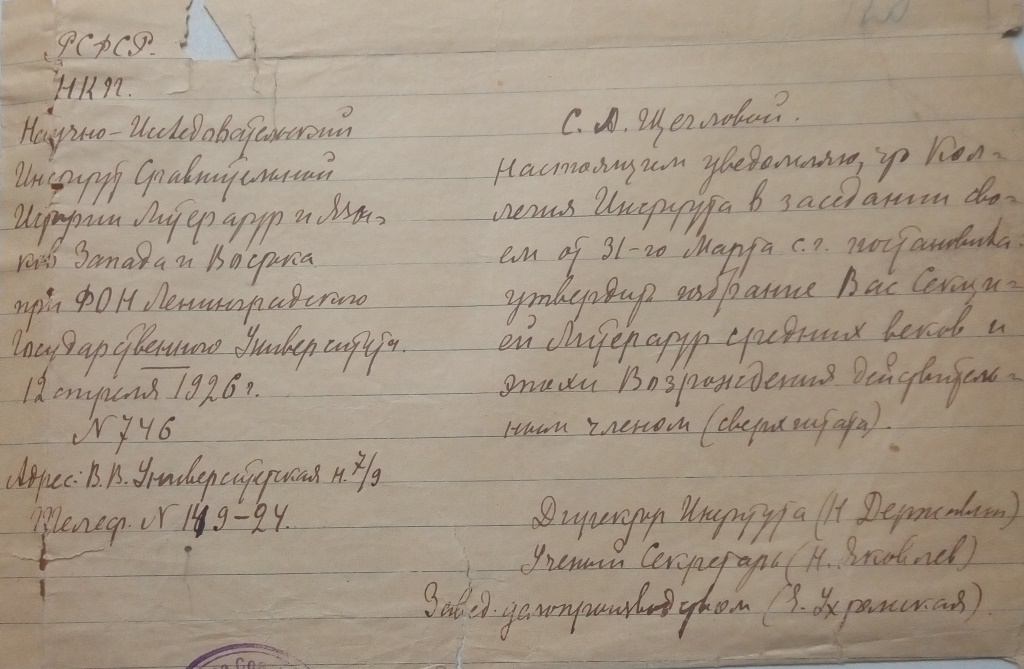 РСФСР.
НКП.
Научно-Исследовательский
Институт Сравнительной
Истории Литератур и Язы-
ков Запада и Востока
при ФОН Ленинградского
Государственного Университета.
12 апреля 1926 г.
N 746
Адрес: В.В. Университетская н. 7/9
Телеф. N 1 9-24.
С. А. Щегловой.
Настоящим уведомляю, что Кол-
легия Института в заседании сво-
ем от 31-го Марта с.г. постановила
утвердить избрание Вас Секци-
ей Литератур средних веков и
эпохи Возрождения действитель-
ным членом (сверх штата).
Директор Института (Н Державин)
Ученый Секретарь (Н. Яковлев)
Завед. делопроизводством (Е. Ухромская).